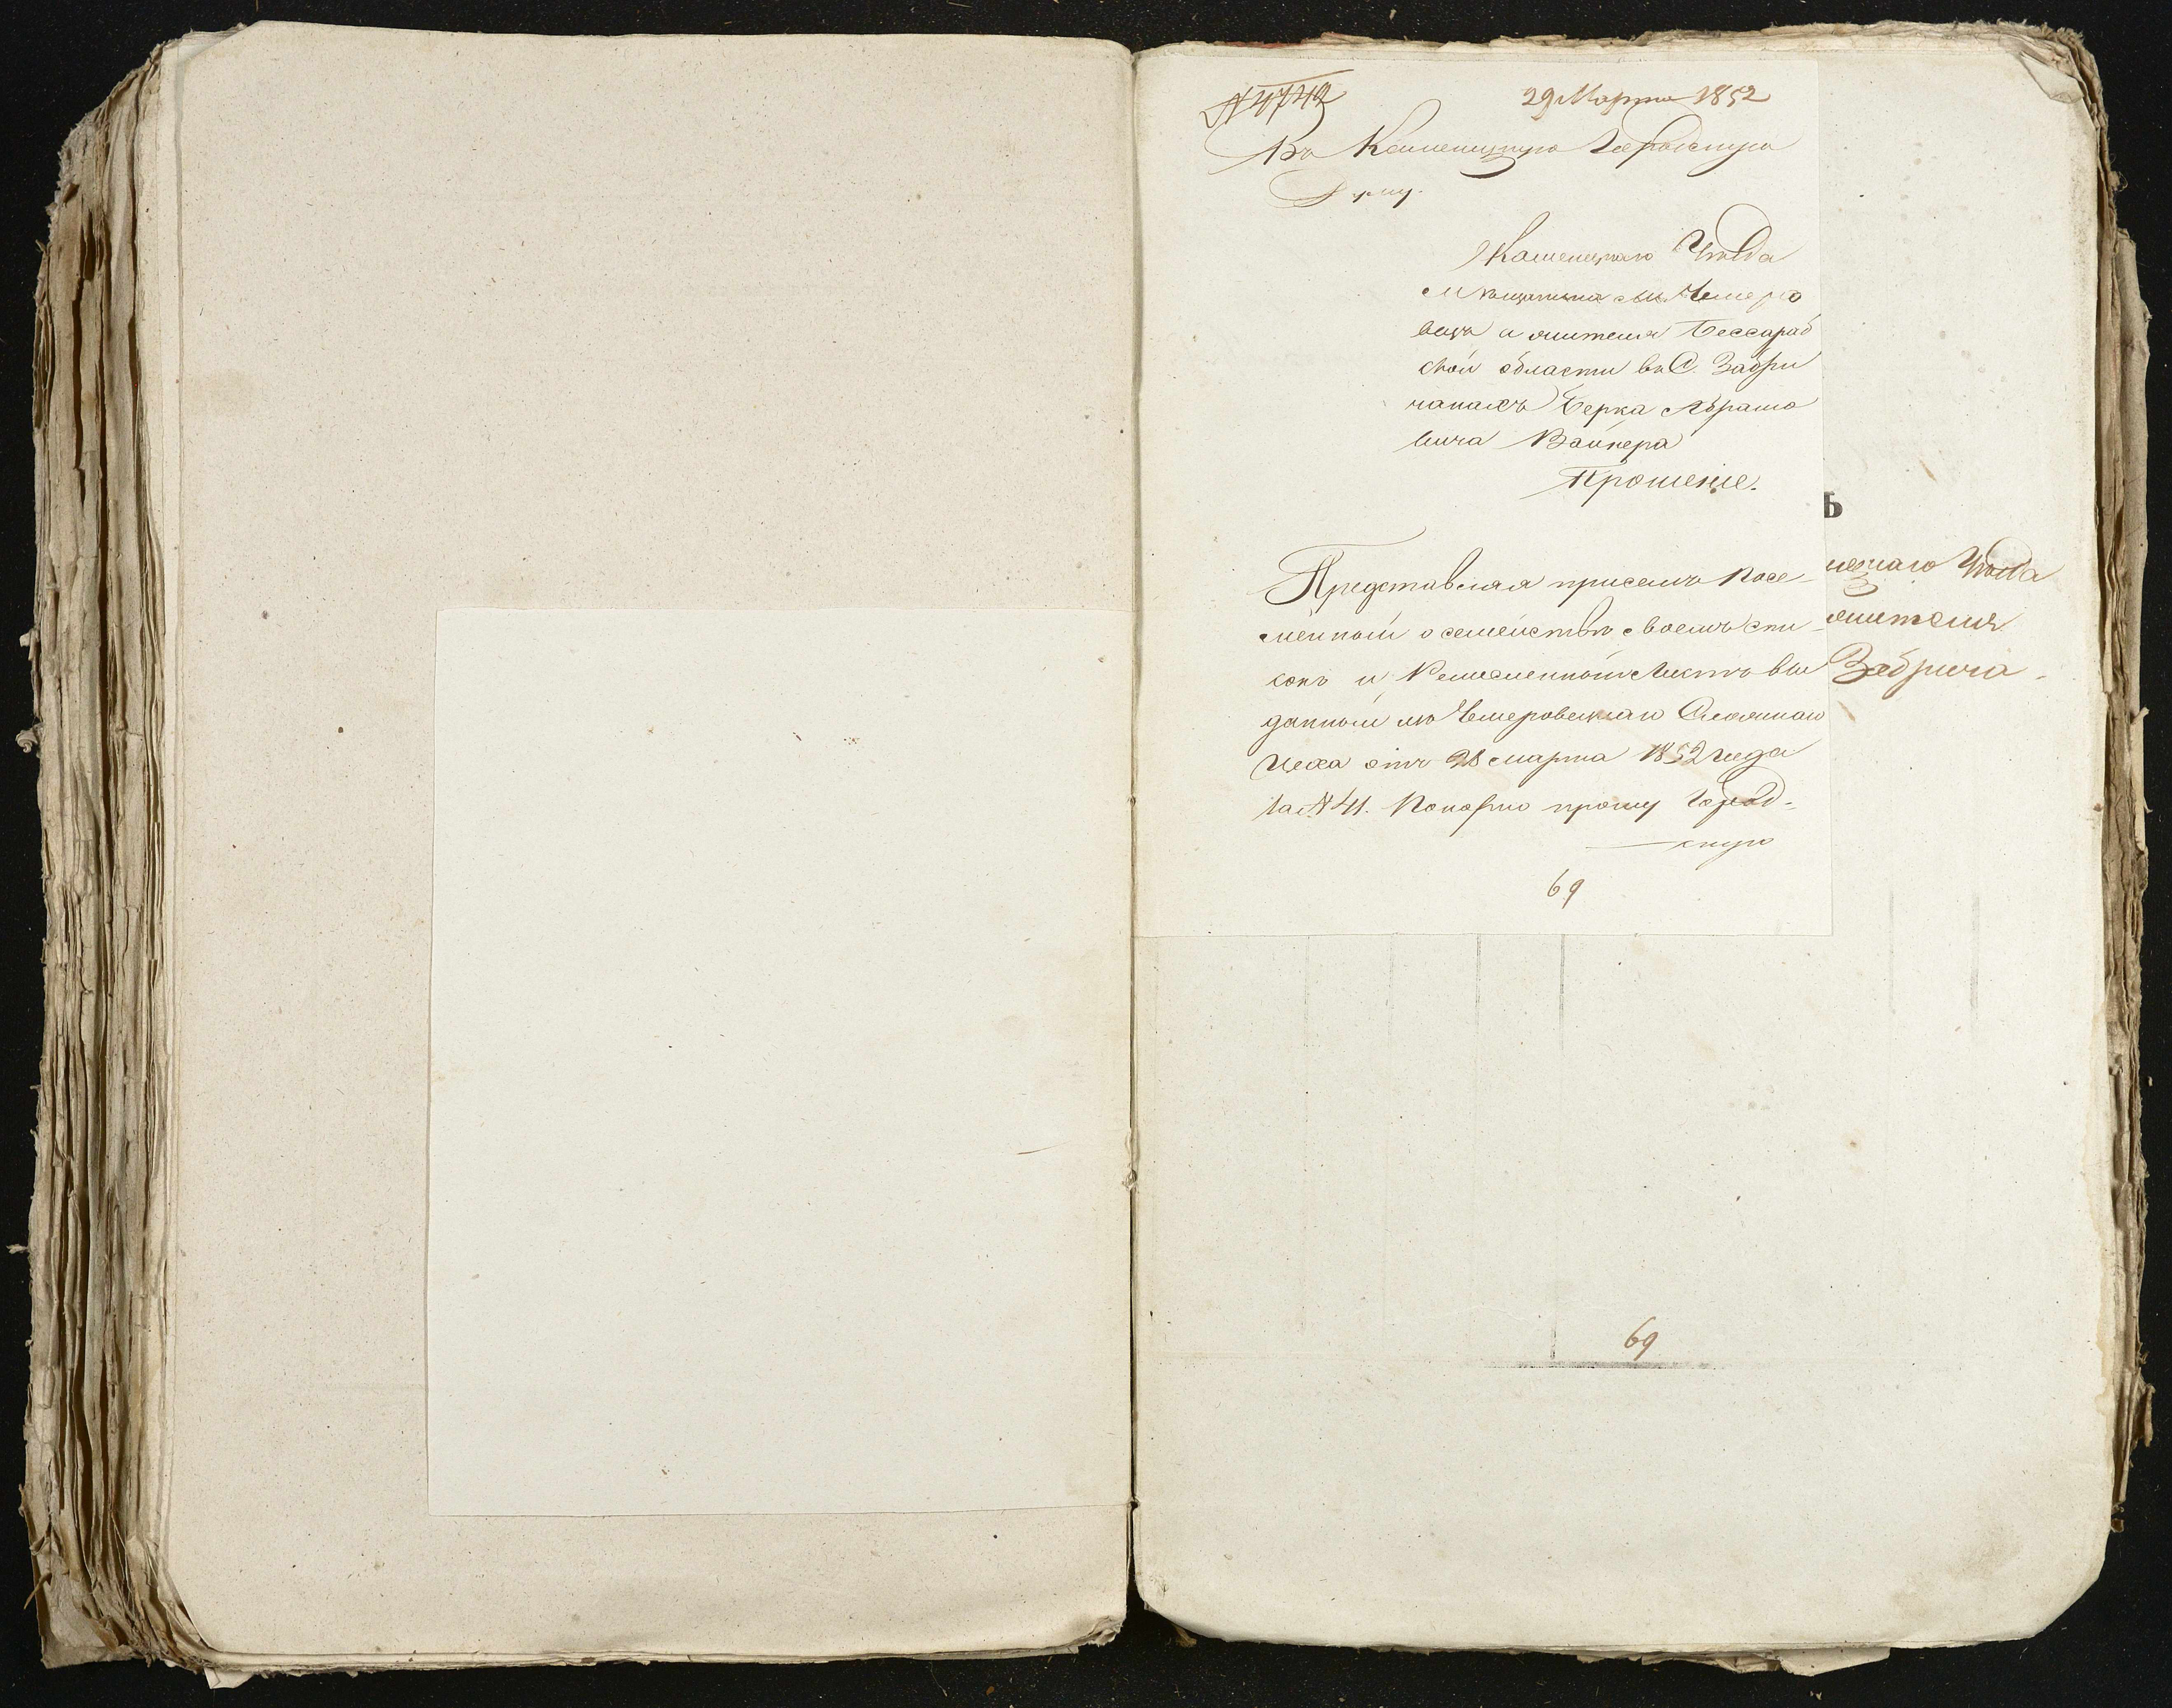 № 4742
29 Марта 1852
Въ Каменецкую Городскую
Думу.
Каменецкаго Уѣзда
мѣщанина м. Чемеро
вецъ и жителя Бессараб
ской области въ С. Забри
чанахъ Берка Абрамо
вича Вайнера
Прошеніе.
Представляя присемъ посе-
мейный о семействѣ своемъ спи-
сокъ и Ремесленный Листъ вы
данный изъ Чемеровецкаго Слесарнаго
Цеха отъ 28 марта 1852 года
за № 41. Покорно прошу Город-
скую
69
ъ
нецкаго Уѣзда
жителя
Забрича
69